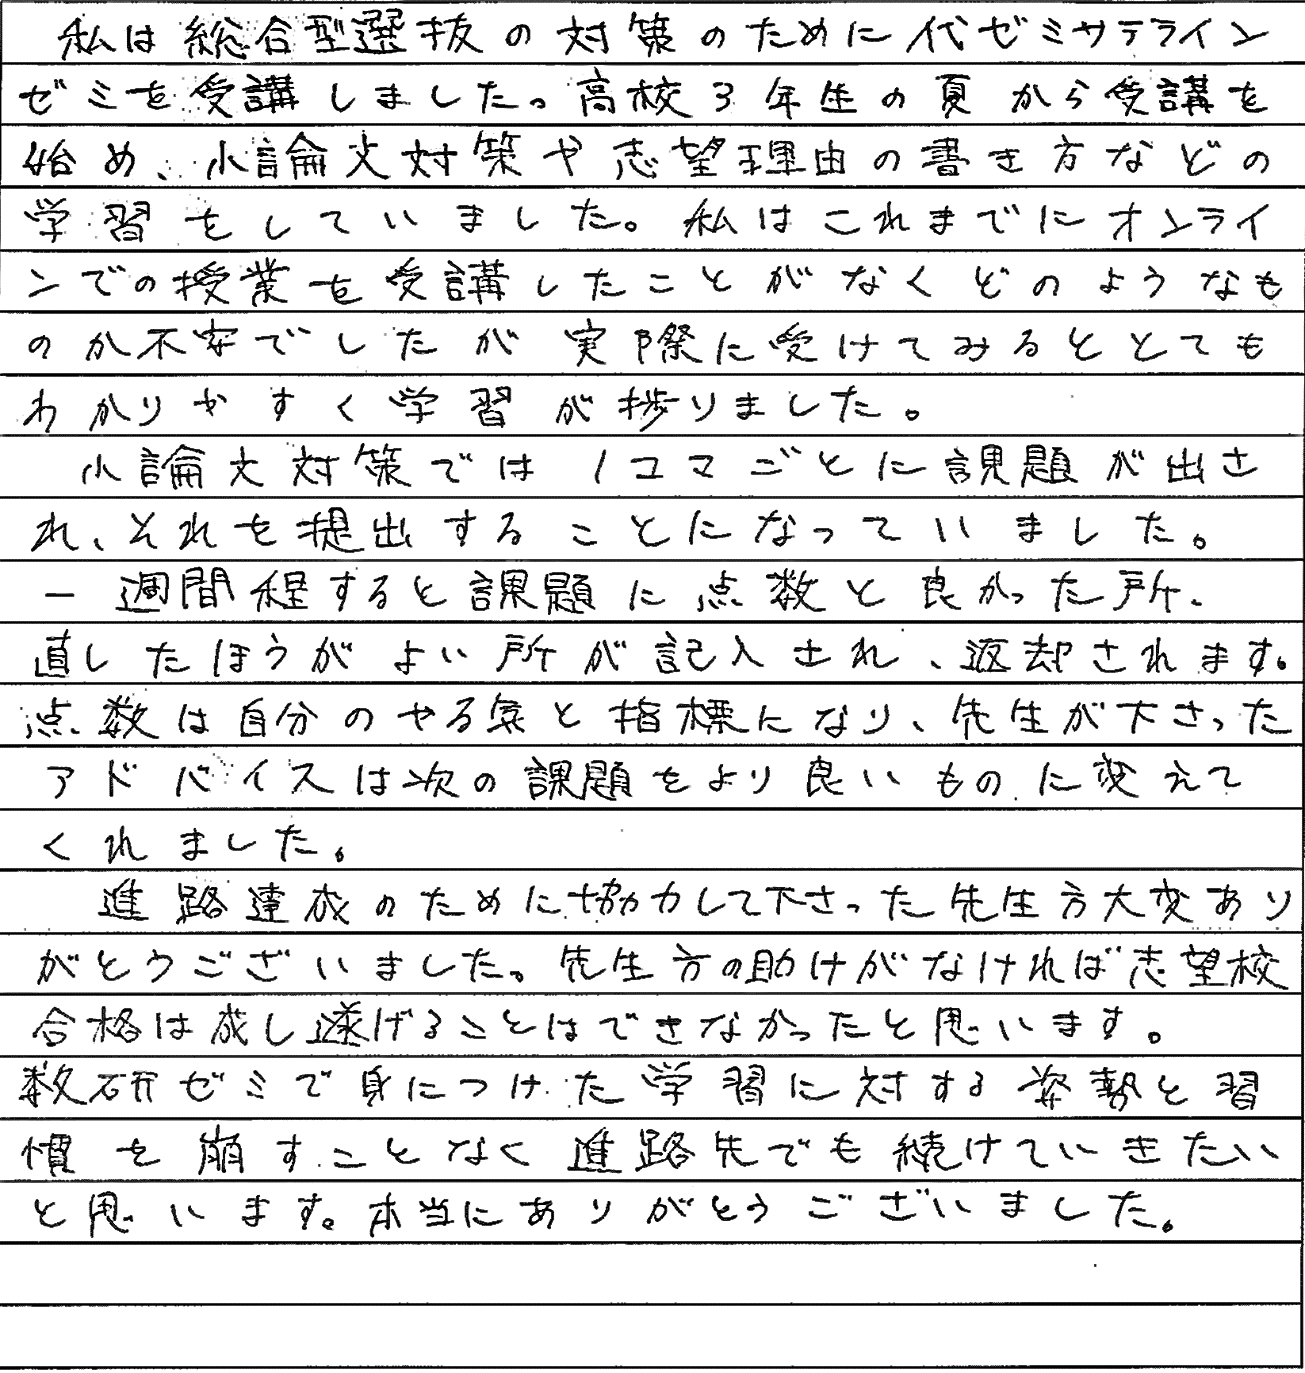 私は総合型選抜の対策のために代ゼミサテライン
ゼミを受講しました。高校3年生の夏から受講を
始め、小論文対策や志望理由の書き方などの
学習をしていました。私はこれまでにオンライ
ンでの授業を受講したことがなくどのようなも
のか不安でしたが実際に受けてみるととても
わかりやすく学習が捗りました。
小論文対策では1コマごとに課題が出さ
れ、それを提出することになっていました。
一週間程すると課題に点数と良かった所、
直したほうがよい所が記入され、返却されます。
点数は自分のやる気と指標になり、先生が下さった
アドバイスは次の課題をより良いものに変えて
くれました。
進路達成のために協力して下さった先生方大変あり
がとうございました。先生方の助けがなければ志望校
合格は成し遂げることはできなかったと思います。
数研ゼミで身につけた学習に対する姿勢と習
慣を崩すことなく進路先でも続けていきたい
と思います。本当にありがとうございました。